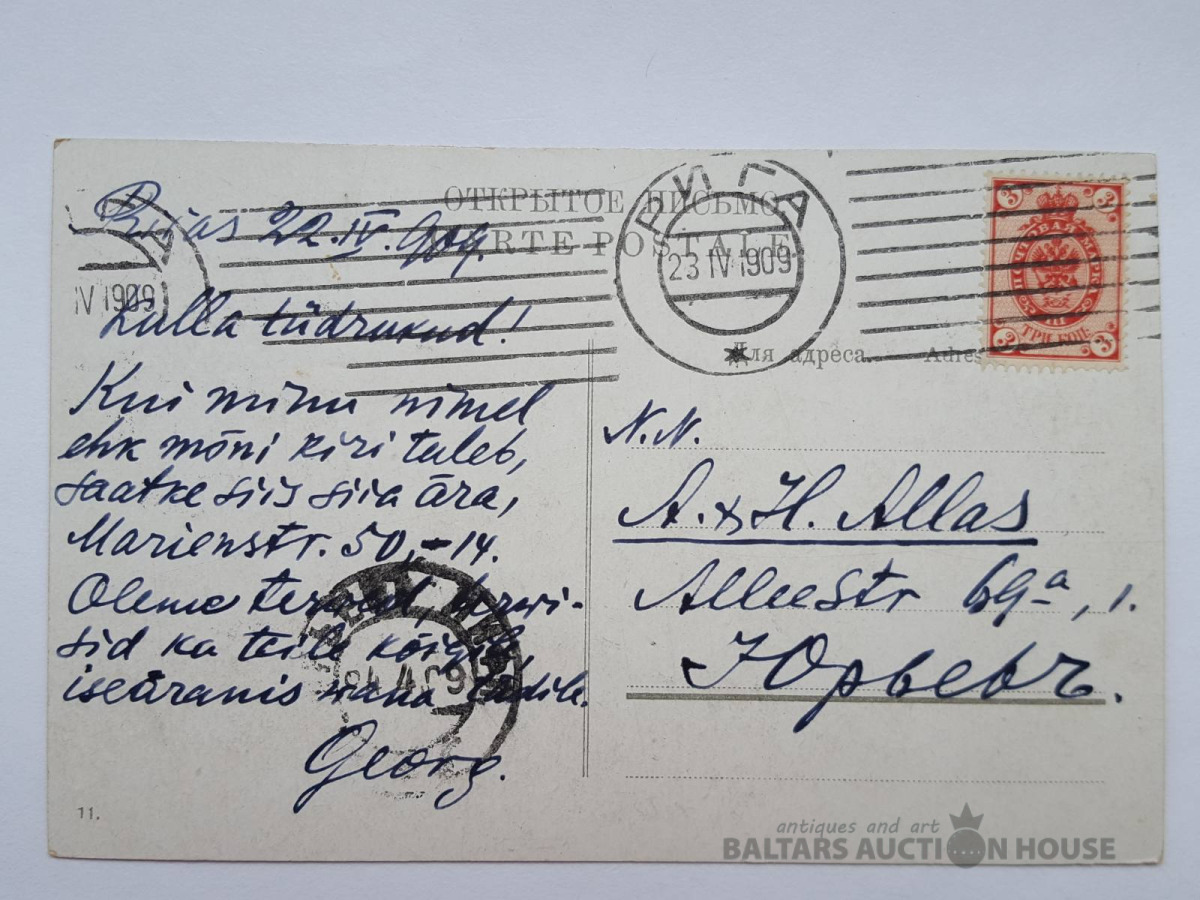 ОТКРЫТОЕ ПИСЬМО
CARTE POSTALE
РИГА
23 IV 1909
IV 1909
А
3 3
ПОЧТОВАЯ МАРКА
ТРИ КОП.
3 3
Для адреса. — Adres
Riias 22.IV.909.
Lulla tüdrukud!
Kui minu nimel
ehk mõni kiri tuleb,
saatke siis siia ära,
Marienstr. 50,-14.
Oleme terved, terwi-
sid ka teile kõigile,
iseäranis wana tädile.
Georg.
N.N.
A. & H. Allas
Alleestr 69a, 1.
Юрьевъ.
11.
antiques and art
BALTARS AUCTION HOUSE